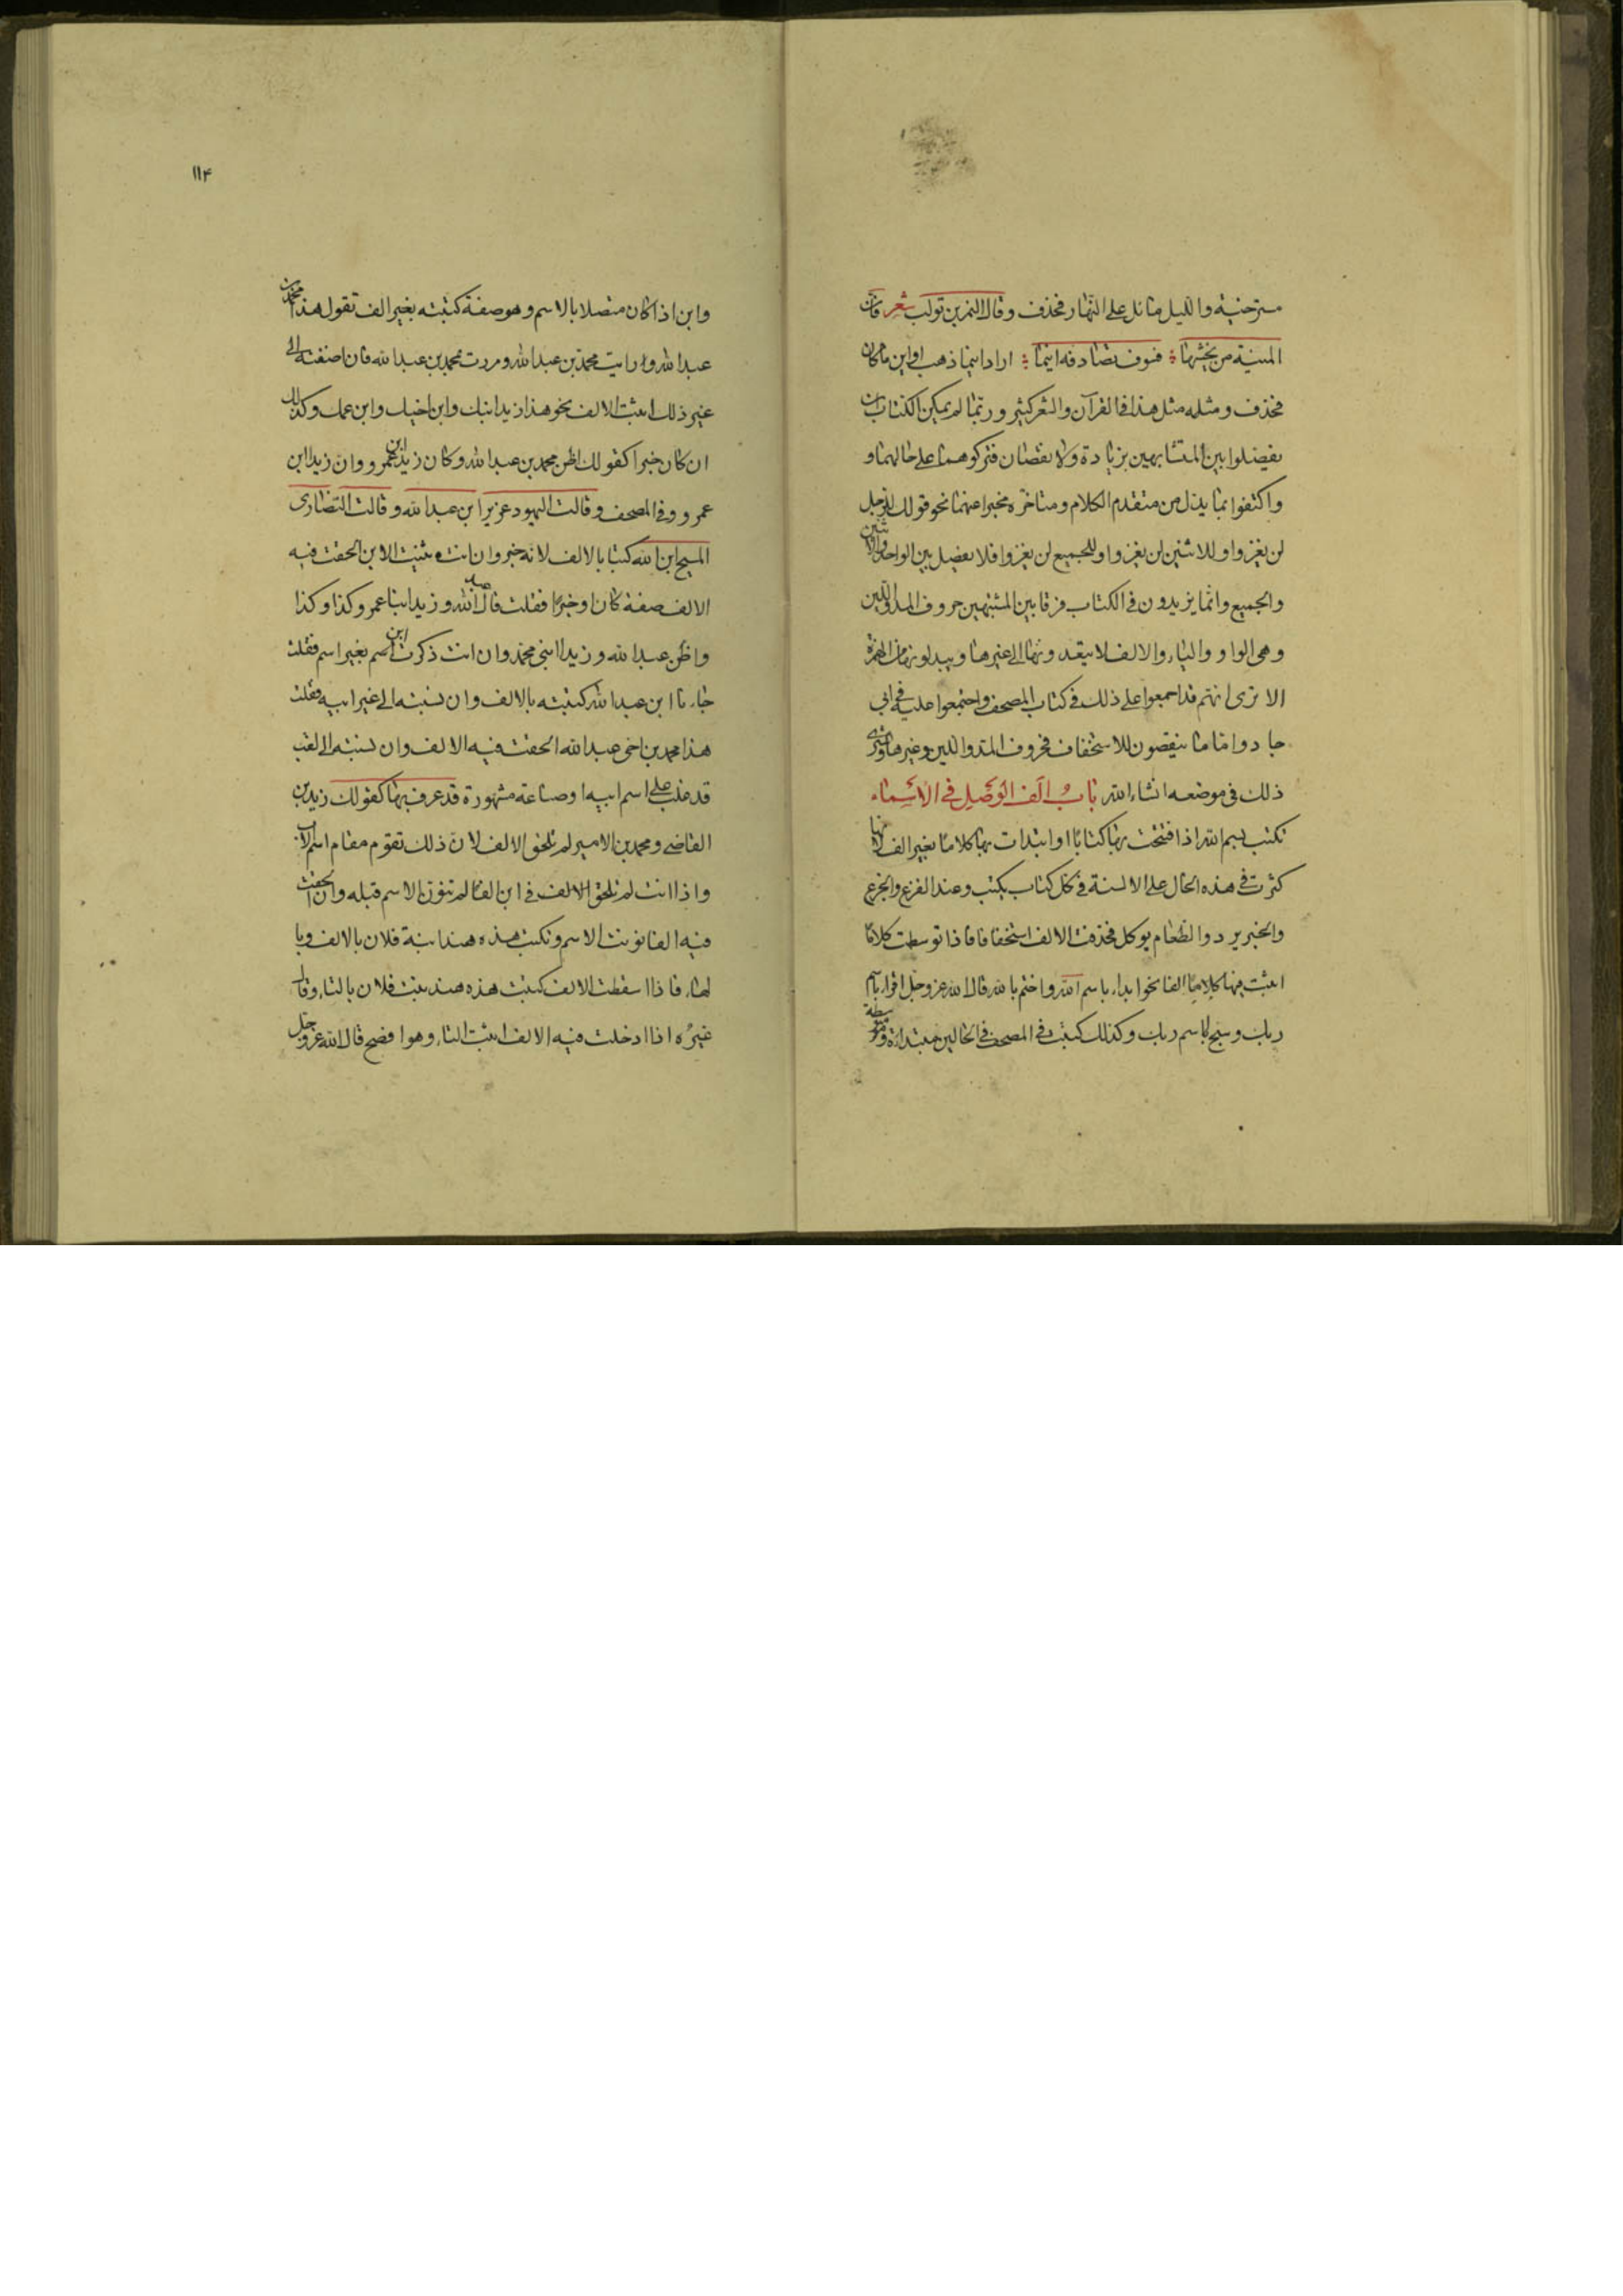 مسترخية والليل مائل على النهار فحذف وقال النمر بن تولب شعر فان
المنية من يخشها فسوف تصادفه اينما اراد اينما ذهب او اين ما كان
فحذف ومثله مثل هذا فى القرآن والشعر كثير وربما لم يمكن الكتاب ان
يفضلوا بين المتشابهين بزيادة ولا نقصان فتركوهما على حالهما و
واكتفوا بما يدل من متقدم الكلام ومتاخره مخبرا عنهما نحو قولك للرجل
لن يغزوا وللاثنين لن يغزوا وللجميع لن يغزوا فلا يفصل بين الواحد والاثنين
والجميع وانما يزيدون فى الكتاب فرقا بين المشتبهين حروف المد واللين
وهى الواو والياء والالف لا يتعدونها الى غيرها ويبدلونها من الهمزة
الا ترى انهم قد اجمعوا على ذلك فى كتاب المصحف واجتمعوا عليه فى ابى
جاد واما ما ينقصون للاستخفاف فحروف المد واللين وغيرها وسترى
ذلك فى موضعه انشاء الله باب الف الوصل فى الاسماء
تكتب بسم الله اذا افتتحت بها كتابا او ابتدات بها كلاما بغير الف لانها
كثرت فى هذه الحال على الالسنة فى كل كتاب يكتب وعند الفزع والجزع
والخبر يرد والطعام يوكل فحذفت الالف استخفافا فاذا توسطت كلاما
اثبت فيها كلاما الفا نحو ابدا باسم الله واختم بالله قال الله عز وجل اقرا باسم
ربك وسبح باسم ربك وكذلك كتبت فى المصحف فى الحالين مبتداة ومتوسطة
١١٤
وابن اذا كان متصلا بالاسم وهو صفة كتبته بغير الف تقول هذا محمد بن
عبد الله ورايت محمد بن عبد الله ومررت بمحمد بن عبد الله فان اضفته الى
غير ذلك اثبت الالف نحو هذا زيد ابنك وابن اخيك وابن عمك وكذلك
ان كان خبرا كقولك اظن محمد بن عبد الله وكان زيد ابن عمرو وان زيدا ابن
عمرو وفى المصحف وقالت اليهود عزير ابن عبد الله وقالت النصارى
المسيح ابن الله كتبا بالالف لانه خبر وان انت ثنيت الابن الحقت فيه
الالف صفة كان او خبرا فقلت قال عبد الله وزيد ابنا عمرو كذا وكذا
واظن عبد الله وزيدا ابنى محمد وان انت ذكرت ابن اسم بغير اسم فقلت
جاءنا ابن عبد الله كتبته بالالف وان نسبته الى غير ابيه فقلت
هذا محمد بن اخى عبد الله الحقت فيه الالف وان نسبته الى لقب
قد غلب على اسم ابيه او صناعة مشهورة قد عرف بها كقولك زيد بن
القاضى ومحمد بن الامير لم تلحق الالف لان ذلك تقوم مقام اسم الاب
واذا انت لم تلحق الالف فى ابن الفا لم تنون الاسم قبله وان الحقت
فيه الفا نونت الاسم وتكتب هذه هند ابنة فلان بالالف وبا
لهاء فاذا اسقطت الالف كتبت هذه هند بنت فلان بالتاء وقال
غيره اذا ادخلت فيه الالف اثبت التاء وهو افصح قال الله عز وجل